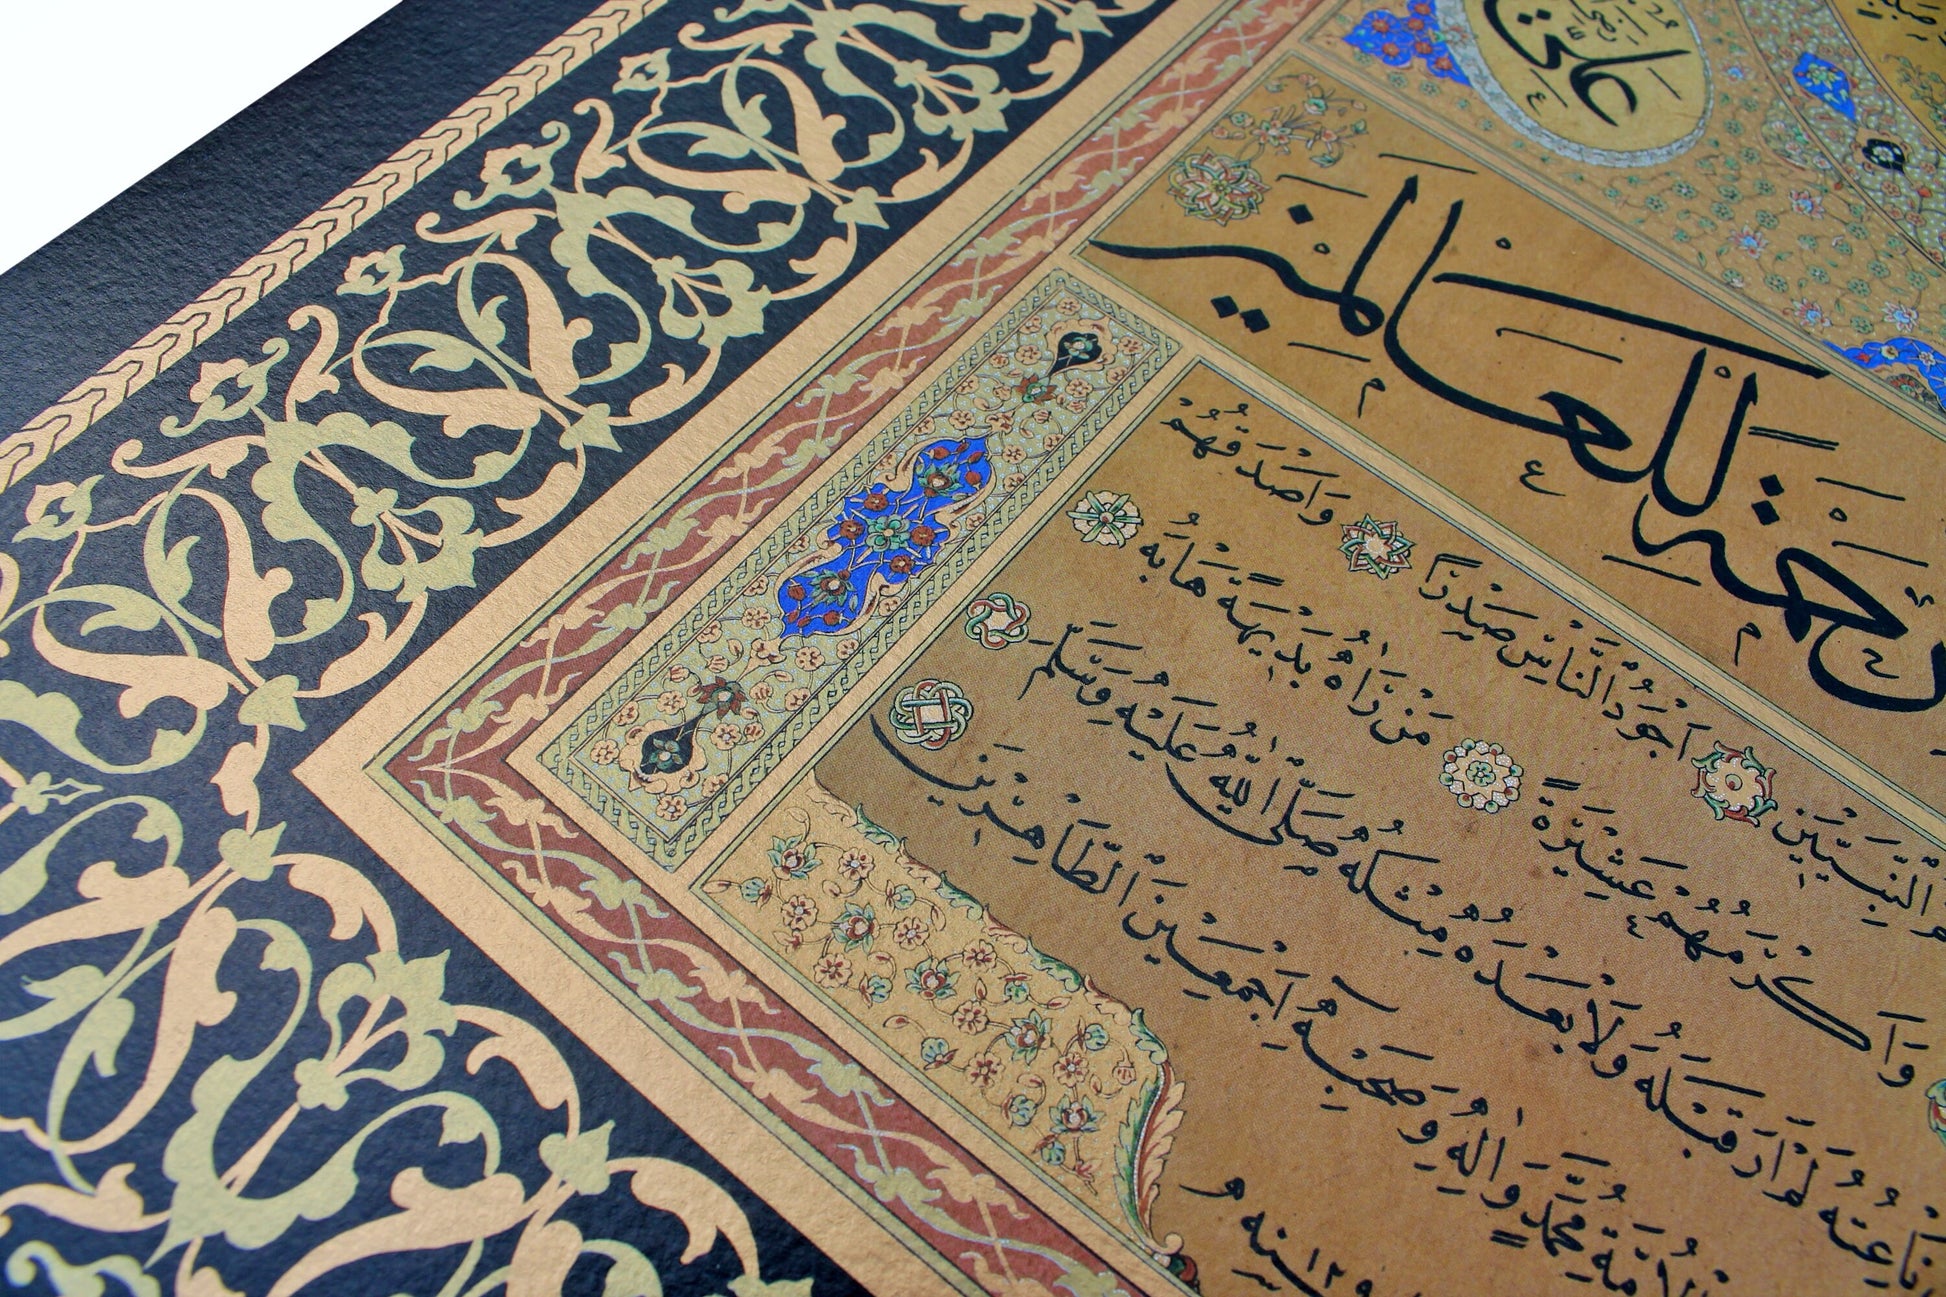 علي رضي
رحمة للعالمين
النبيين اجود الناس صدرا واصدقهم
واكرمهم عشيرة من راه بديهة هابه
ناعته لم ار قبله ولا بعده مثله صلى الله عليه وسلم
محمد واله وصحبه اجمعين الطاهرين
سنه